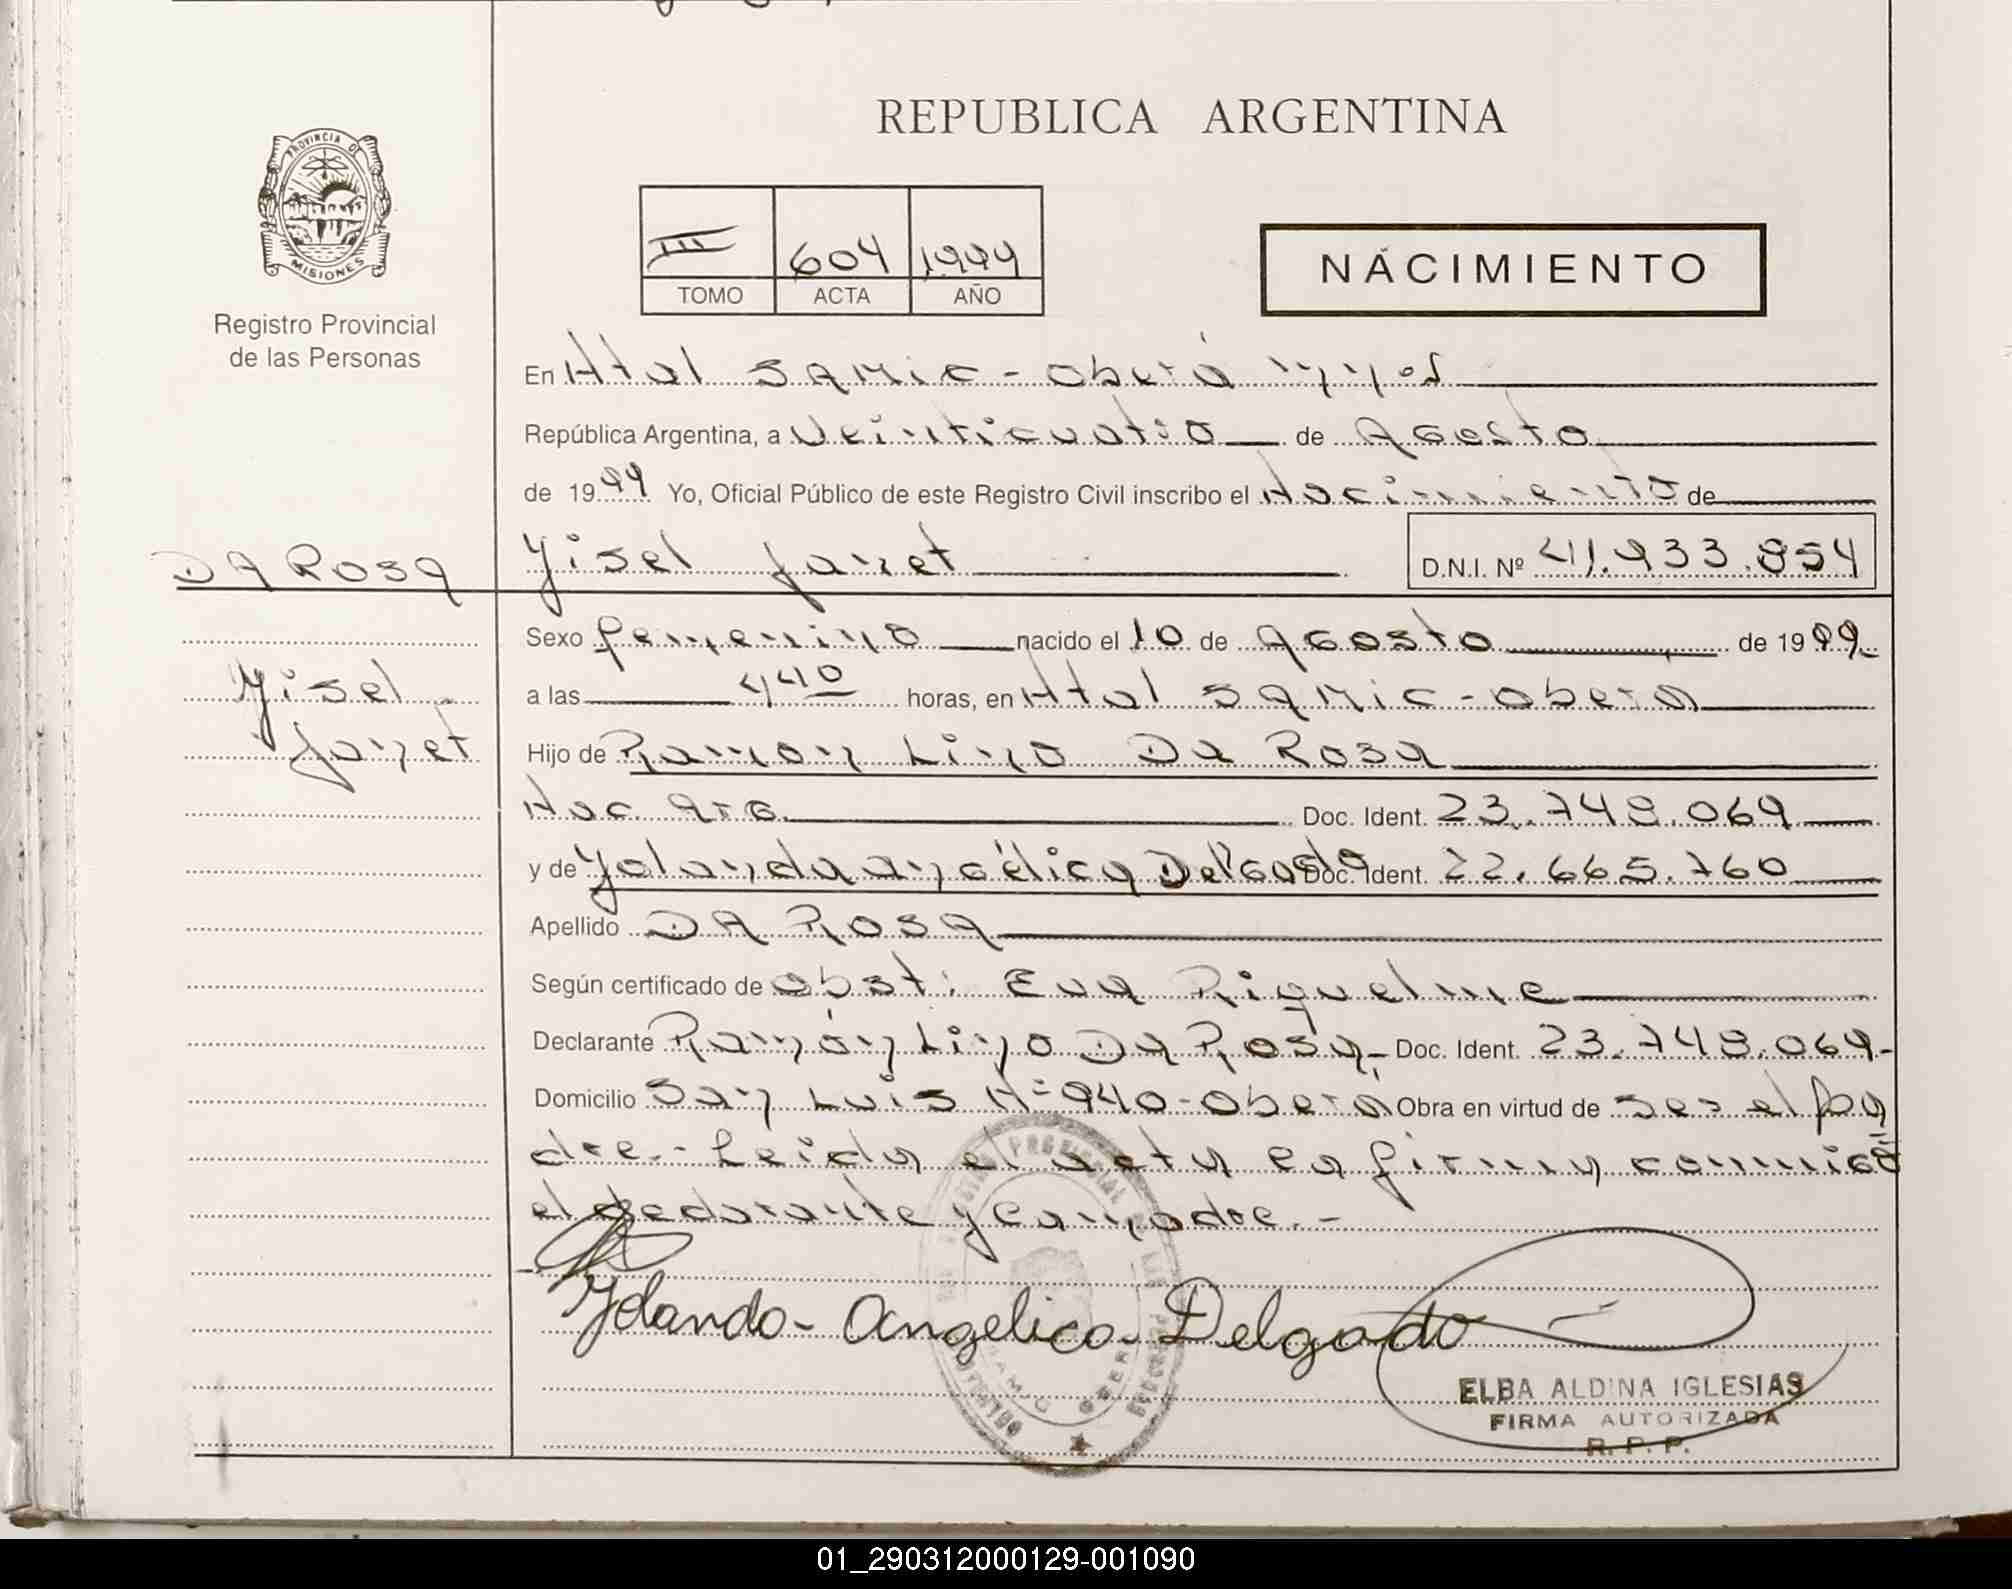 REPUBLICA ARGENTINA
PROVINCIA DE
MISIONES
Registro Provincial
de las Personas
III 604 1999
TOMO ACTA AÑO
NÁCIMIENTO
En Htal SAMIC - Oberá
República Argentina, a Veinticuatro de Agosto
de 1999 Yo, Oficial Público de este Registro Civil inscribo el Nacimiento de
DA ROSA Yisel Janet D.N.I. Nº 41.933.854
Sexo femenino nacido el 10 de Agosto de 1999.
Yisel
a las 440 horas, en Htal SAMIC - Oberá
Janet
Hijo de Ramon Lino Da Rosa
Nac. Arg. Doc. Ident. 23.748.069
y de Yolanda angélica Delgado Doc. Ident. 22.665.760
Apellido DA ROSA
Según certificado de obst: Eva Riquelme
Declarante Ramón Lino Da Rosa - Doc. Ident. 23.748.069-
Domicilio San Luis Nº 940 - Oberá Obra en virtud de ser el pa
dre.- Leida el acta la firma conmigo
el declarante y la madre.-
Yolanda - Angelica - Delgado
ELBA ALDINA IGLESIAS
FIRMA AUTORIZADA
R. P. P.
01_290312000129-001090